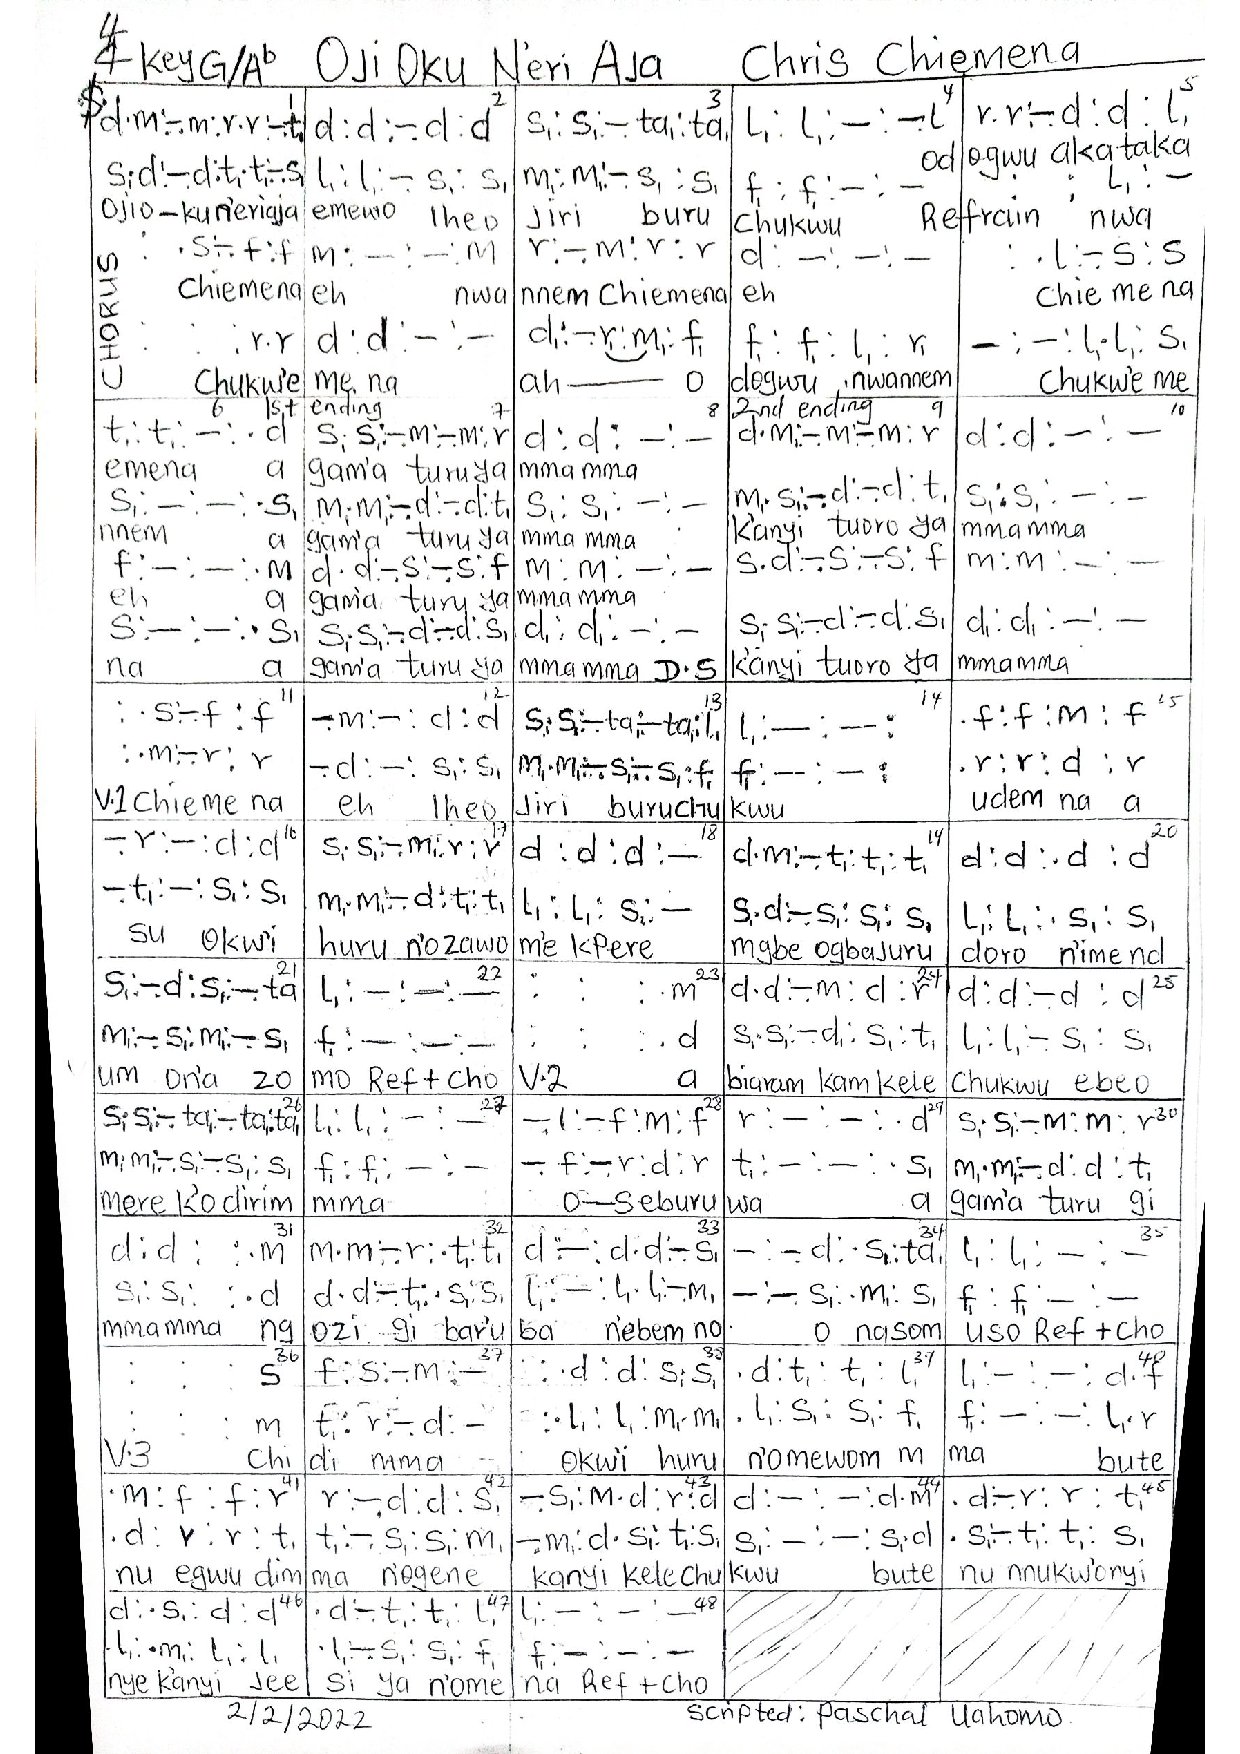 4 Key G/Ab Oji Oku N'eri Aja Chris Chiemena
1 2 3 4 5
d.m:-m:r.r:-t, d:d:-d:d s,:s,:-ta,:ta, l,:l,:-:-l r.r:-d:d:l,
od ogwu akataka
s,d:-d:t,t,:-s, l,:l,:-s,:s, m,:m,:-s,:s, f,:f,:-:- : : l,:-
Ojio-ku n'eriaja emewo Iheo Jiri buru Chukwu Refrain nwa
CHORUS
: .s:-f:f m:-:-:m r:-m:r:r d:-:-:- : .l:-s:s
Chiemena eh nwa nnem Chiemena eh Chie me na
: : r.r d:d:-:- d,:-r,:m,:f, f,:f,:l,:r, -:-:l,.l,:s,
Chukw'e me na ah— o dogwu nwannem Chukw'e me
6 1st ending 7 8 2nd ending 9 10
t,:t,:-:.d s,s,:-m:-m:r d:d:-:- d.m:-m:-m:r d:d:-:-
emena a gam'a turu ya mma mma
s,:-:-:.s, m,m,:-d:-d:t, s,:s,:-:- m,.s,:-d:-d:t, s,:s,:-:-
nnem a gam'a turu ya mma mma K'anyi tuoro ya mma mma
f:-:-:m d.d:-s:-s:f m:m:-:- s.d:-s:-s:f m:m:-:-
eh a gam'a turu ya mma mma
s:-:-:.s, s,s,:-d:-d:s, d,:d,:-:- s,s,:-d:-d:s, d,:d,:-:-
na a gam'a turu ya mma mma D.S K'anyi tuoro ya mmamma
11 12 13 14 15
: .s:-f:f -m:-:d:d s,s,:-ta,:-ta,:l, l,:-:-: .f:f:m:f
: .m:-r:r -d:-:s,:s, m,.m,:-s,:-s,:f, f,:-:-: .r:r:d:r
V.1 Chieme na eh Iheo Jiri buruchu kwu udem na a
16 17 18 19 20
-r:-:d:d s,.s,:-m:r:r d:d:d:- d.m:-t,:t,:t, d:d:.d:d
-t,:-:s,:s, m,.m,:-d:t,:t, l,:l,:s,:- s,.d:-s,:s,:s, l,:l,:.s,:s,
su Okw'i huru n'ozawo m'e kpere mgbe ogbajuru doro n'ime nd
21 22 23 24 25
s,:-d:s,:-ta l,:-:-:- : : :.m d.d:-m:d:r d:d:-d:d
m,:-s,:m,:-s, f,:-:-:- : : :.d s,.s,:-d,:s,:t, l,:l,:-s,:s,
um on'a zo mo Ref+cho V.2 a biaram kam kele Chukwu ebeo
26 27 28 29 30
s,s,:-ta,:-ta,:ta, l,:l,:-:- -l:-f:m:f r:-:-:.d s,.s,:-m:m:r
m,m,:-s,:-s,:s, f,:f,:-:- -f:-r:d:r t,:-:-:.s, m,.m,:-d:d:t,
mere k'o dirim mma O—seburu wa a gam'a turu gi
31 32 33 34 35
d:d: :.m m.m:-r:.t,:t, d:-:d.d:-s, -:-d:.s,:ta, l,:l,:-:-
s,:s,: :.d d.d:-t,:.s,:s, l,:-:l,.l,:-m, -:-s,:.m,:s, f,:f,:-:-
mmamma ng ozi gi bar'u ba n'ebem no o nasom uso Ref+cho
36 37 38 39 40
: : : s f:s:-m:- : .d:d:s,s, .d:t,:t,:l, l,:-:-:d.f
: : : m t,:r:-d:- : .l,:l,:m,.m, .l,:s,:s,:f, f,:-:-:l,.r
V.3 Chi di mma Okw'i huru n'omewom m ma bute
41 42 43 44 45
.m:f:f:r r:-d:d:s, -s,:m.d:r:d d:-:-:d.m .d:-r:r:t,
.d:r:r:t, t,:-s,:s,:m, -m,:d.s,:t,:s, s,:-:-:s,d .s,:-t,:t,:s,
nu egwu dim ma n'ogene kanyi kelechu kwu bute nu nnukw'onyi
46 47 48
d:.s,:d:d .d:-t,:t,:l, l,:-:-:-
.l,:.m,:l,:l, .l,:-s,:s,:f, f,:-:-:-
nye k'anyi Jee si ya n'ome na Ref+cho
2/2/2022 scripted: Paschal Uahomo